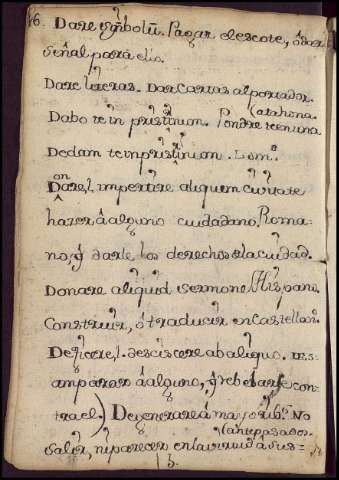 16. Dare symbolū. Pagar el escote, ó dar
señal para ello.
Dare literas. Dar Cartas al portador.
Dabo te in pristinum. Pondre te en una
(atahona.
Dedam te in pristinum. Lomº.
Donare, l. impertire aliquem civitate
hazer à alguno ciudadano Roma-
no, y darle los derechos de la ciudad.
Donare aliquid sermone Hispano.
Construir, ó traducir en Castellanº.
Deficere, l. desciscere ab aliquo. Des-
amparar à alguno, y rebelarse con-
tra el.) Degenerare á maioribꝰ. No
(antepasados.
salir, ni parecer en la virtud á sus-